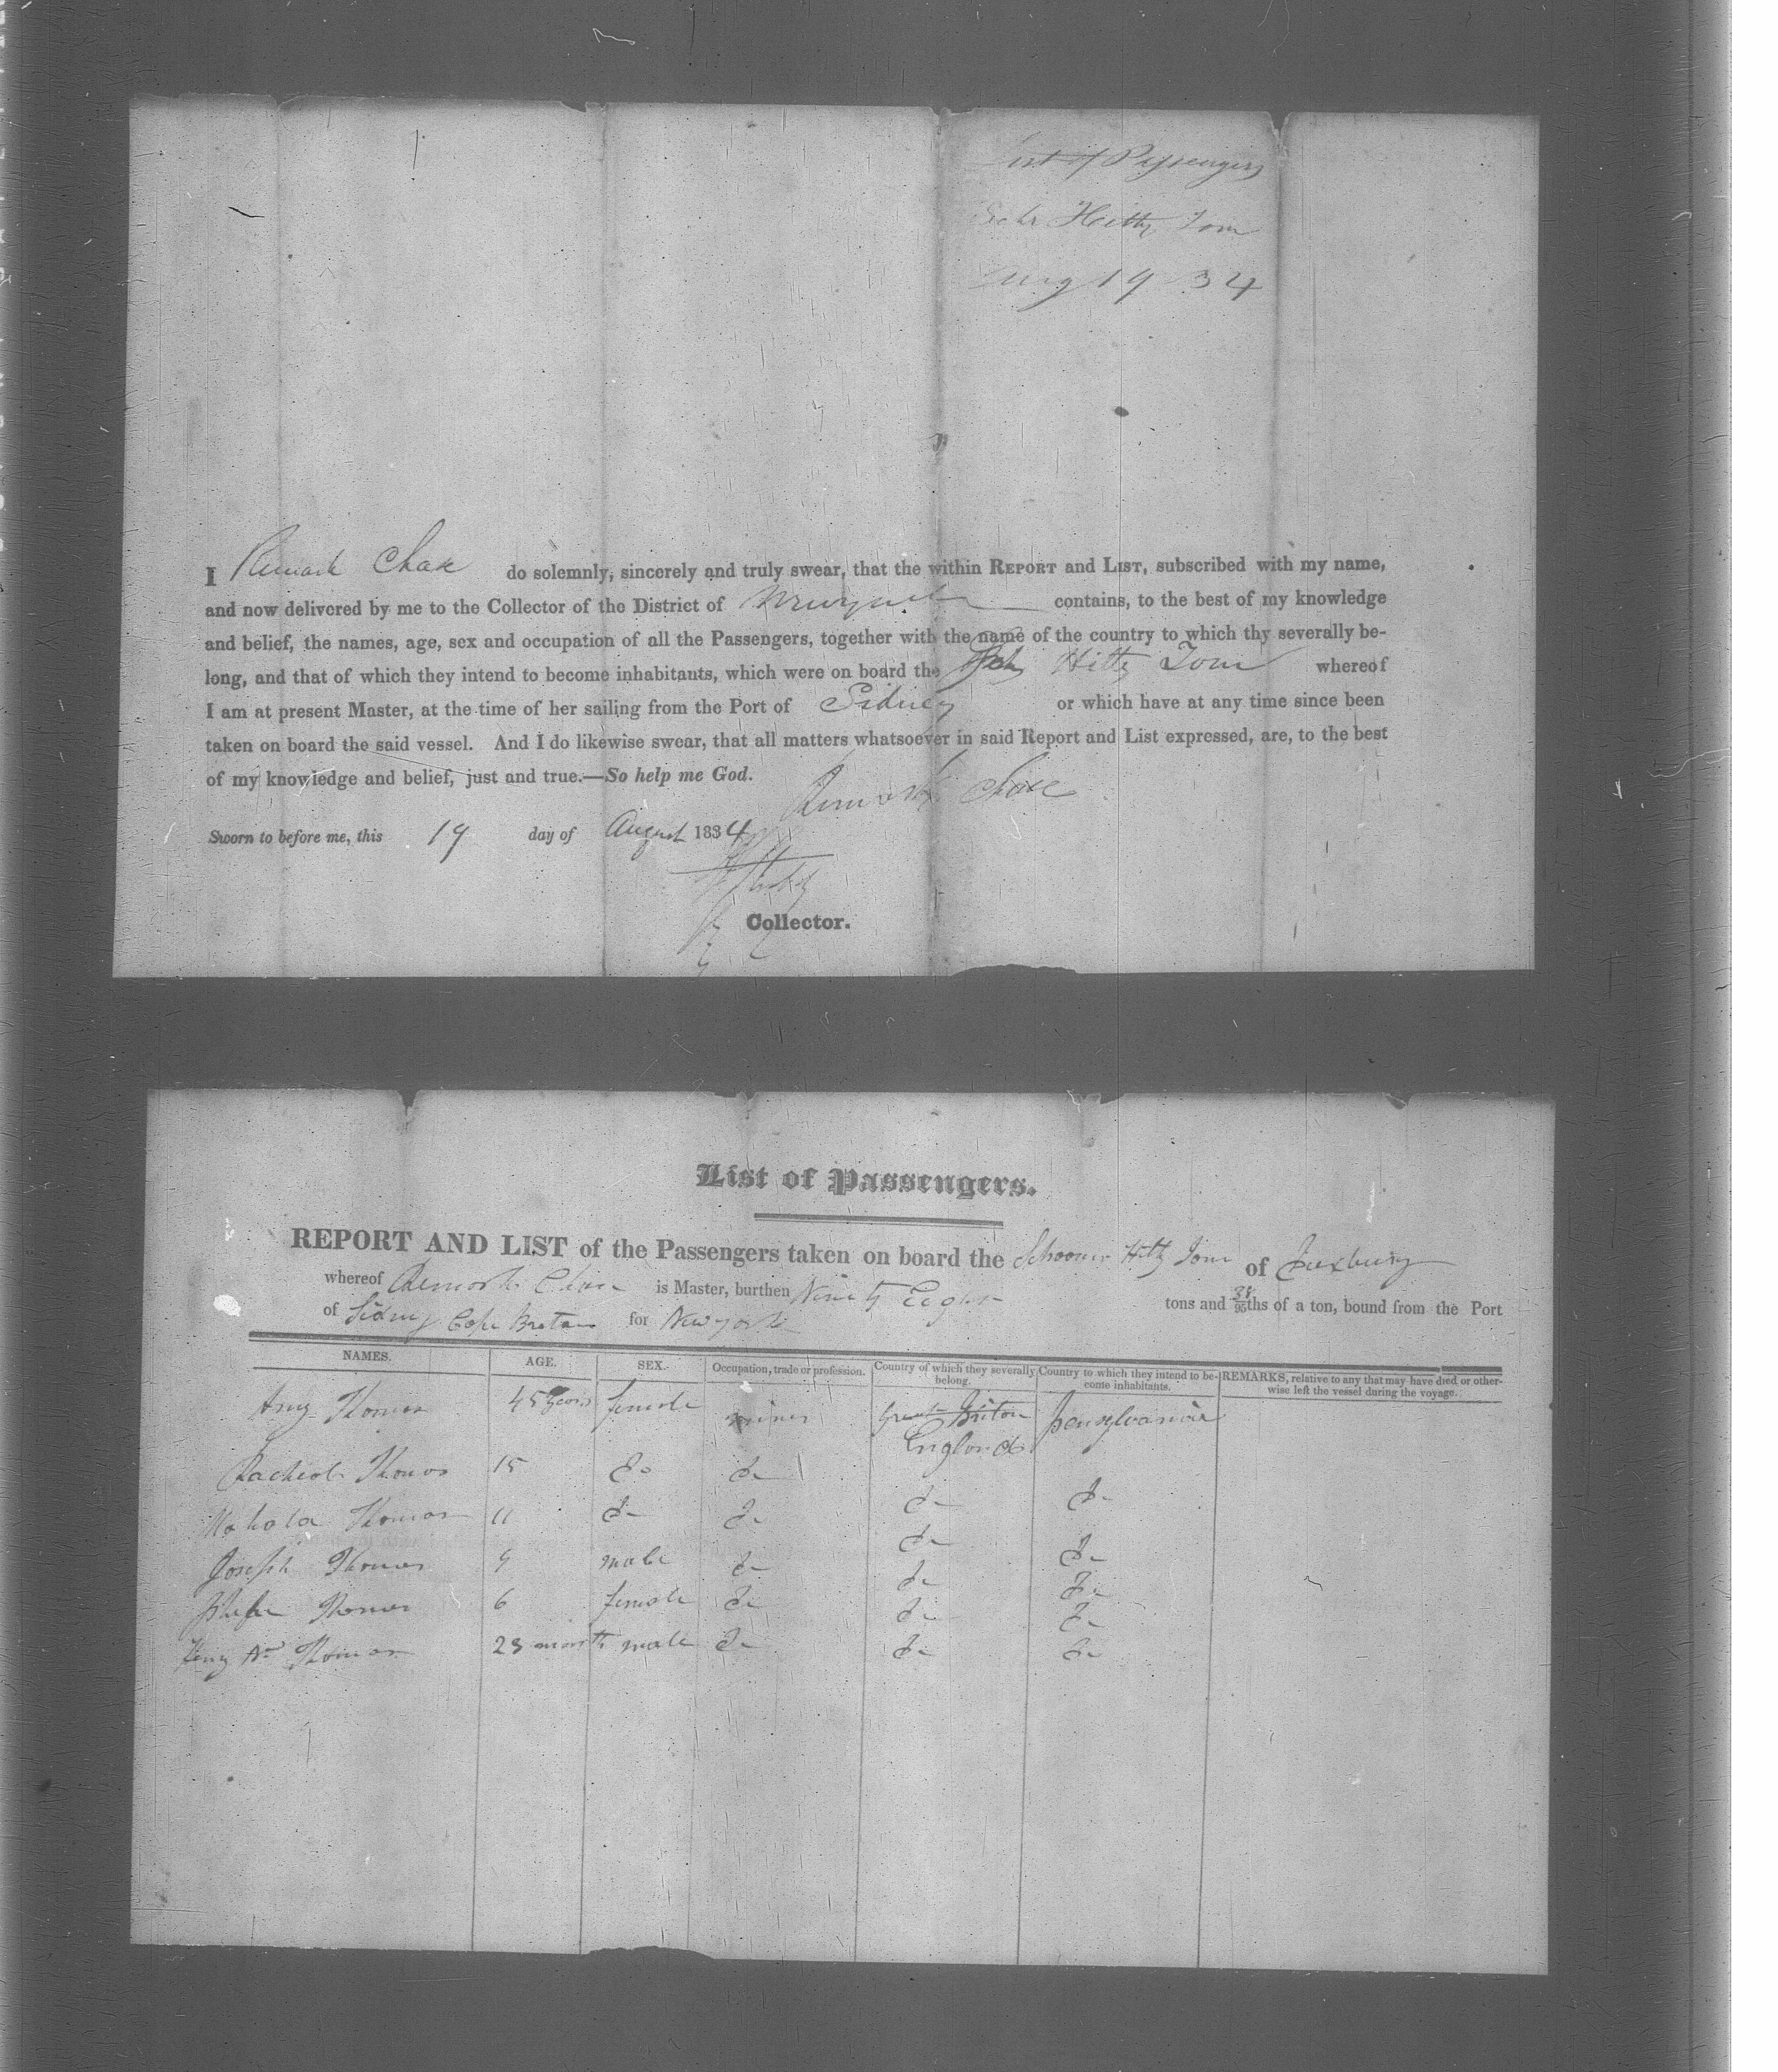 List of Passengers
Schr Hitty Tom
Aug 19 34
I Remark Chase do solemnly, sincerely and truly swear, that the within REPORT and LIST, subscribed with my name,
and now delivered by me to the Collector of the District of Newyork contains, to the best of my knowledge
and belief, the names, age, sex and occupation of all the Passengers, together with the name of the country to which thy severally be-
long, and that of which they intend to become inhabitants, which were on board the Sch Hitty Tom whereof
I am at present Master, at the time of her sailing from the Port of Sidney or which have at any time since been
taken on board the said vessel. And I do likewise swear, that all matters whatsoever in said Report and List expressed, are, to the best
of my knowledge and belief, just and true.—So help me God.
Remark Chase
Sworn to before me, this 19 day of August 1834
Collector.
List of Passengers.
REPORT AND LIST of the Passengers taken on board the Schooner Hitty Tom of Duxbury
whereof Remark Chase is Master, burthen Ninety Eight tons and 38/95ths of a ton, bound from the Port
of Sidney Cape Breton for New york
NAMES. AGE. SEX. Occupation, trade or profession. Country of which they severally belong. Country to which they intend to be-come inhabitants. REMARKS, relative to any that may have died or other-wise left the vessel during the voyage.
Amy Thomas 45 years female miner Great Briton Pensylvania
England
Racheol Thomas 15 Do Do Do Do
Mahala Thomas 11 Do Do Do Do
Joseph Thomas 9 male Do Do Do
Phebe Thomas 6 female Do Do Do
Henry Wm Thomas 23 month male Do Do Do